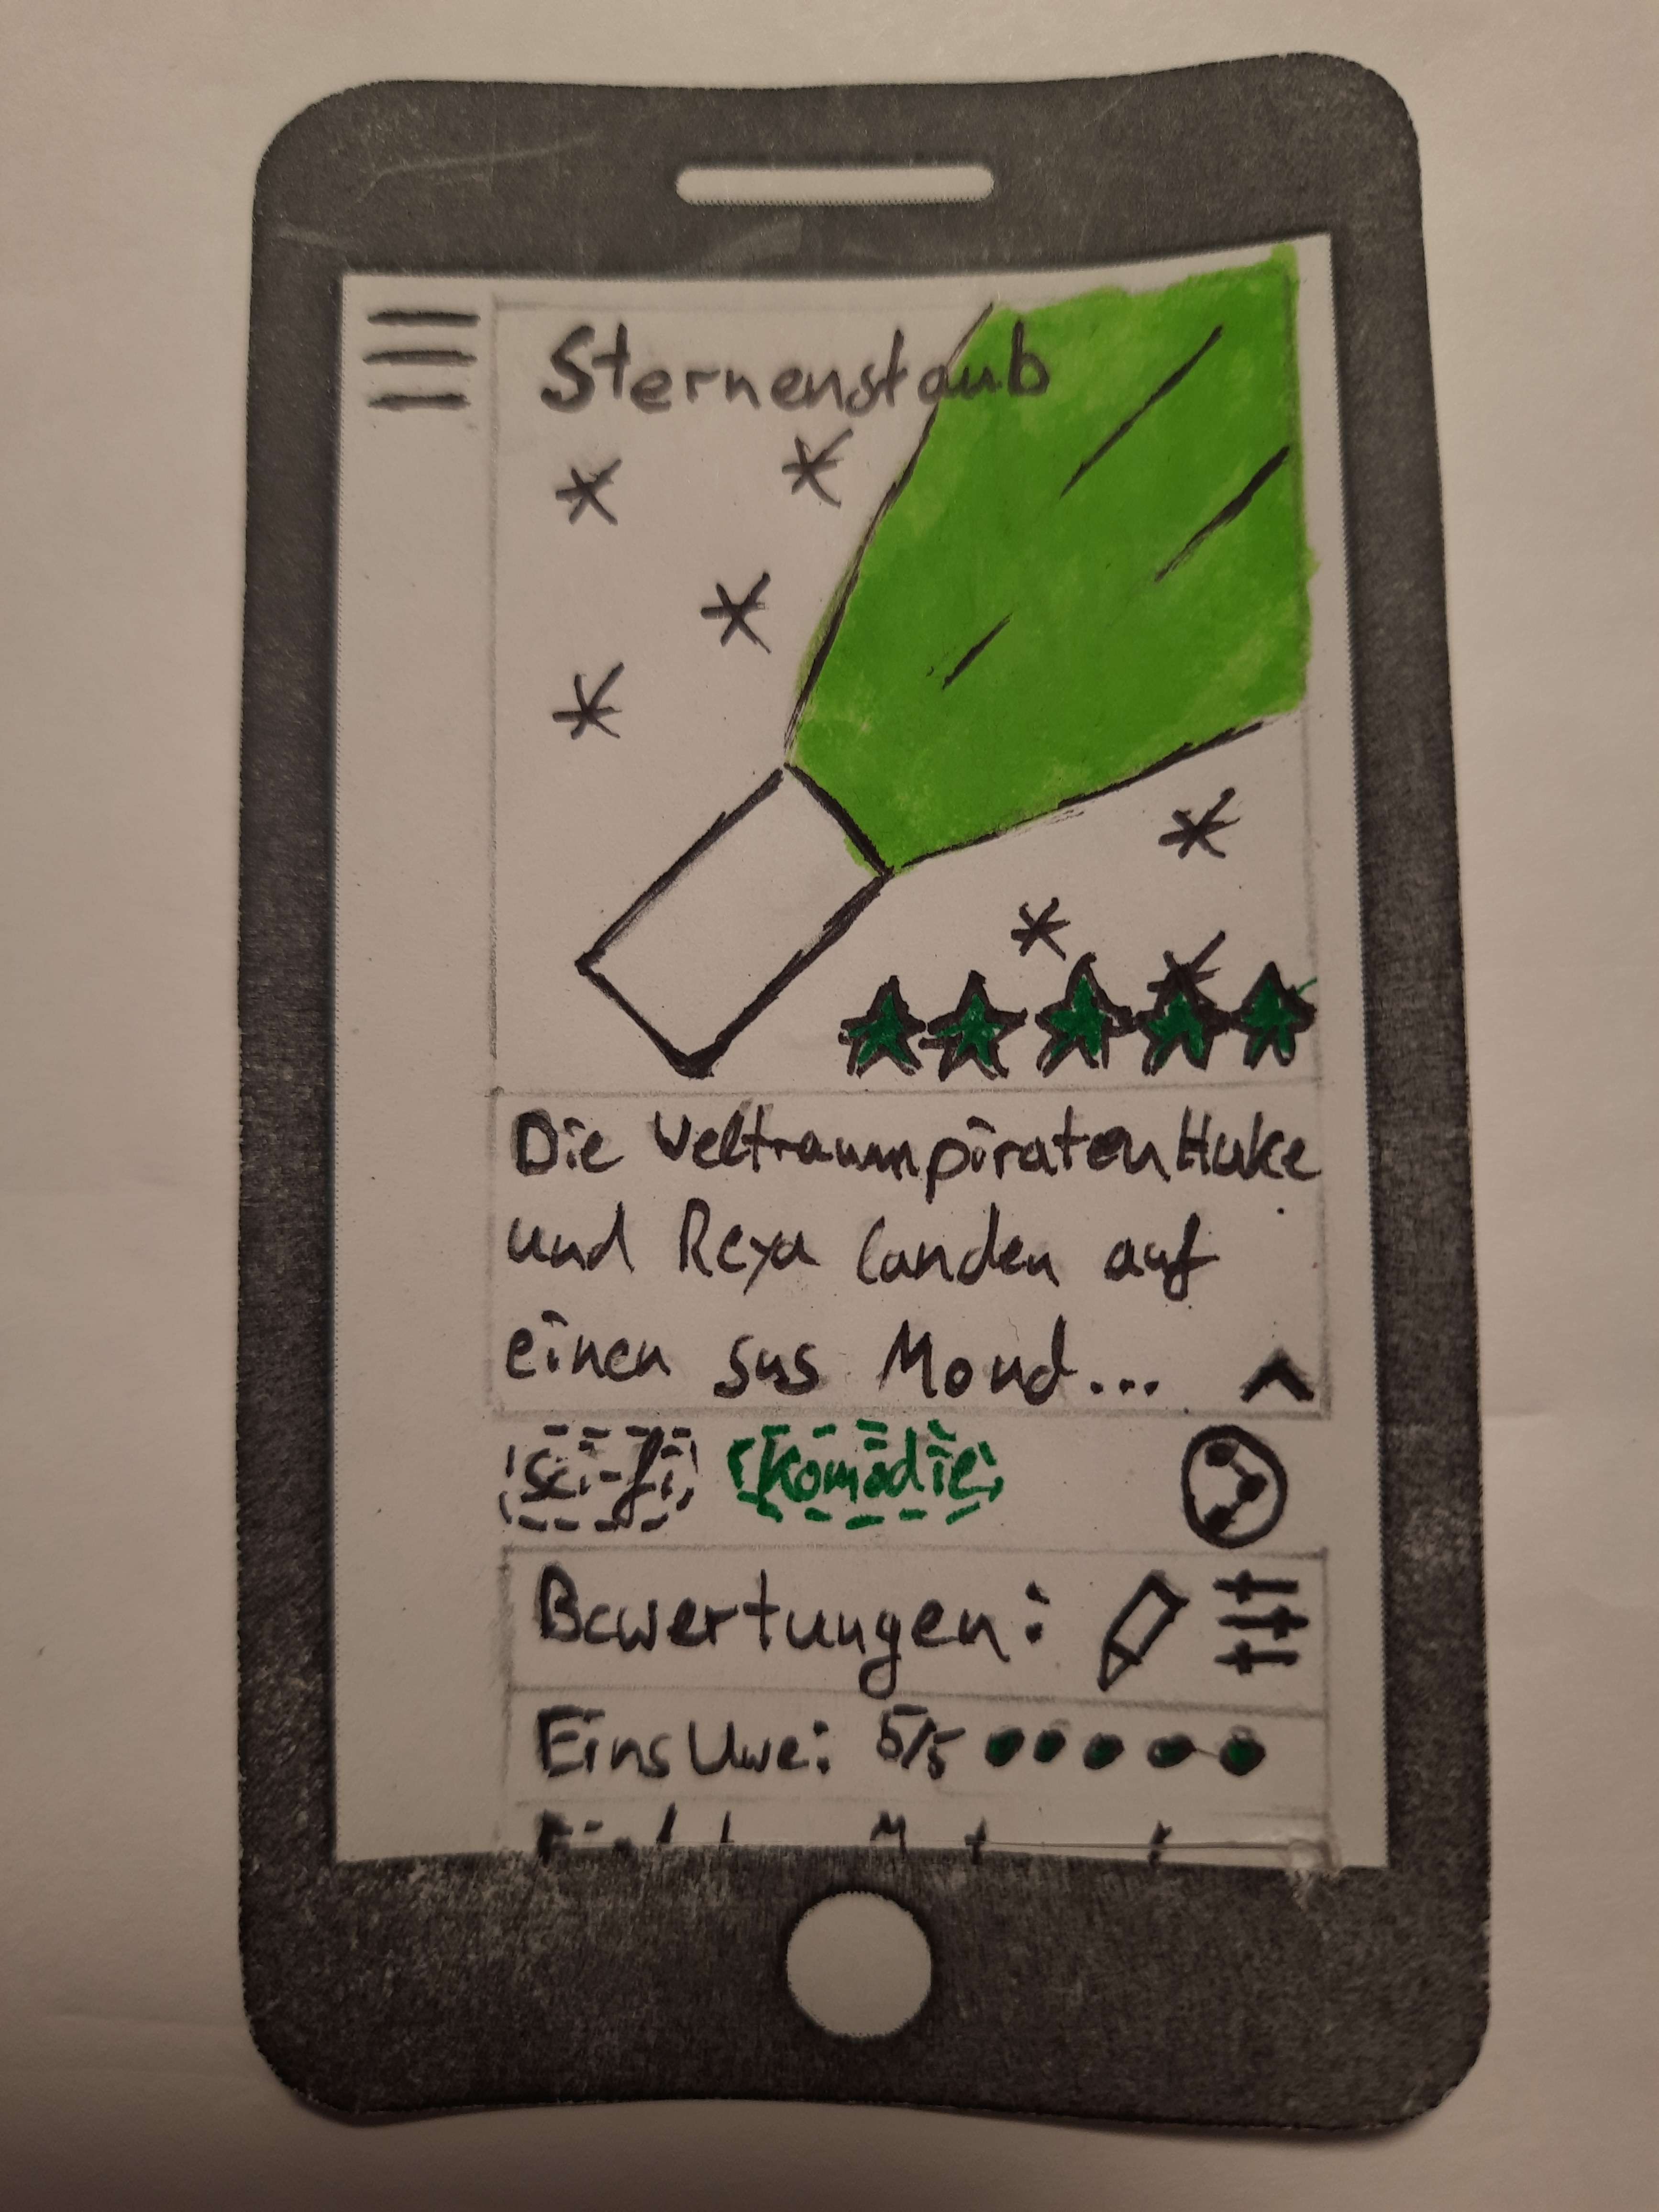 Sternenstaub
Die Weltraumpiraten Huke
und Rexa landen auf
einen sus Mond...
Sci-fi Komödie
Bewertungen:
EinsUwe: 5/5